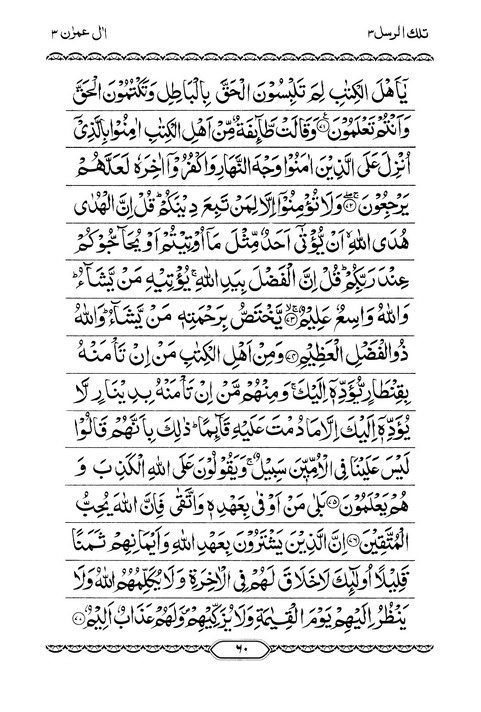 تلك الرسل ٣ اٰل عمرٰن ٣
يٰٓاَهْلَ الْكِتٰبِ لِمَ تَلْبِسُوْنَ الْحَقَّ بِالْبَاطِلِ وَتَكْتُمُوْنَ الْحَقَّ
وَاَنْتُمْ تَعْلَمُوْنَ ۝٧١ وَقَالَتْ طَّآئِفَةٌ مِّنْ اَهْلِ الْكِتٰبِ اٰمِنُوْا بِالَّذِيْٓ
اُنْزِلَ عَلَى الَّذِيْنَ اٰمَنُوْا وَجْهَ النَّهَارِ وَاكْفُرُوْٓا اٰخِرَهٗ لَعَلَّهُمْ
يَرْجِعُوْنَ ۝٧٢ وَلَا تُؤْمِنُوْٓا اِلَّا لِمَنْ تَبِعَ دِيْنَكُمْ ؕ قُلْ اِنَّ الْهُدٰى
هُدَى اللّٰهِ ۙ اَنْ يُّؤْتٰٓى اَحَدٌ مِّثْلَ مَآ اُوْتِيْتُمْ اَوْ يُحَآجُّوْكُمْ
عِنْدَ رَبِّكُمْ ؕ قُلْ اِنَّ الْفَضْلَ بِيَدِ اللّٰهِ ۚ يُؤْتِيْهِ مَنْ يَّشَآءُ ؕ
وَاللّٰهُ وَاسِعٌ عَلِيْمٌ ۝٧٣ يَّخْتَصُّ بِرَحْمَتِهٖ مَنْ يَّشَآءُ ؕ وَاللّٰهُ
ذُو الْفَضْلِ الْعَظِيْمِ ۝٧٤ وَمِنْ اَهْلِ الْكِتٰبِ مَنْ اِنْ تَاْمَنْهُ
بِقِنْطَارٍ يُّؤَدِّهٖٓ اِلَيْكَ ۚ وَمِنْهُمْ مَّنْ اِنْ تَاْمَنْهُ بِدِيْنَارٍ لَّا
يُؤَدِّهٖٓ اِلَيْكَ اِلَّا مَا دُمْتَ عَلَيْهِ قَآئِمًا ؕ ذٰلِكَ بِاَنَّهُمْ قَالُوْا
لَيْسَ عَلَيْنَا فِى الْاُمِّيّٖنَ سَبِيْلٌ ۚ وَيَقُوْلُوْنَ عَلَى اللّٰهِ الْكَذِبَ وَ
هُمْ يَعْلَمُوْنَ ۝٧٥ بَلٰى مَنْ اَوْفٰى بِعَهْدِهٖ وَاتَّقٰى فَاِنَّ اللّٰهَ يُحِبُّ
الْمُتَّقِيْنَ ۝٧٦ اِنَّ الَّذِيْنَ يَشْتَرُوْنَ بِعَهْدِ اللّٰهِ وَاَيْمَانِهِمْ ثَمَنًا
قَلِيْلًا اُولٰٓئِكَ لَا خَلَاقَ لَهُمْ فِى الْاٰخِرَةِ وَلَا يُكَلِّمُهُمُ اللّٰهُ وَلَا
يَنْظُرُ اِلَيْهِمْ يَوْمَ الْقِيٰمَةِ وَلَا يُزَكِّيْهِمْ ۪ وَلَهُمْ عَذَابٌ اَلِيْمٌ ۝٧٧
٦٠